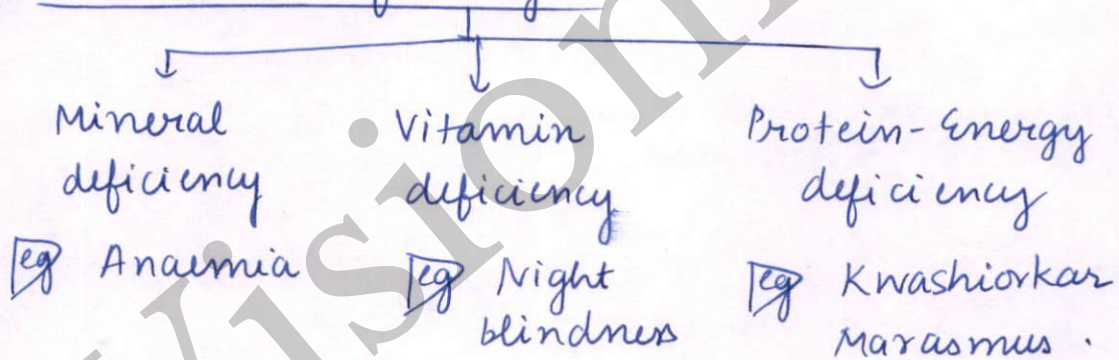 Mineral deficiency
eg Anaemia
Vitamin deficiency
eg Night blindness
Protein-Energy deficiency
eg Kwashiorkar
Marasmus.
Vision